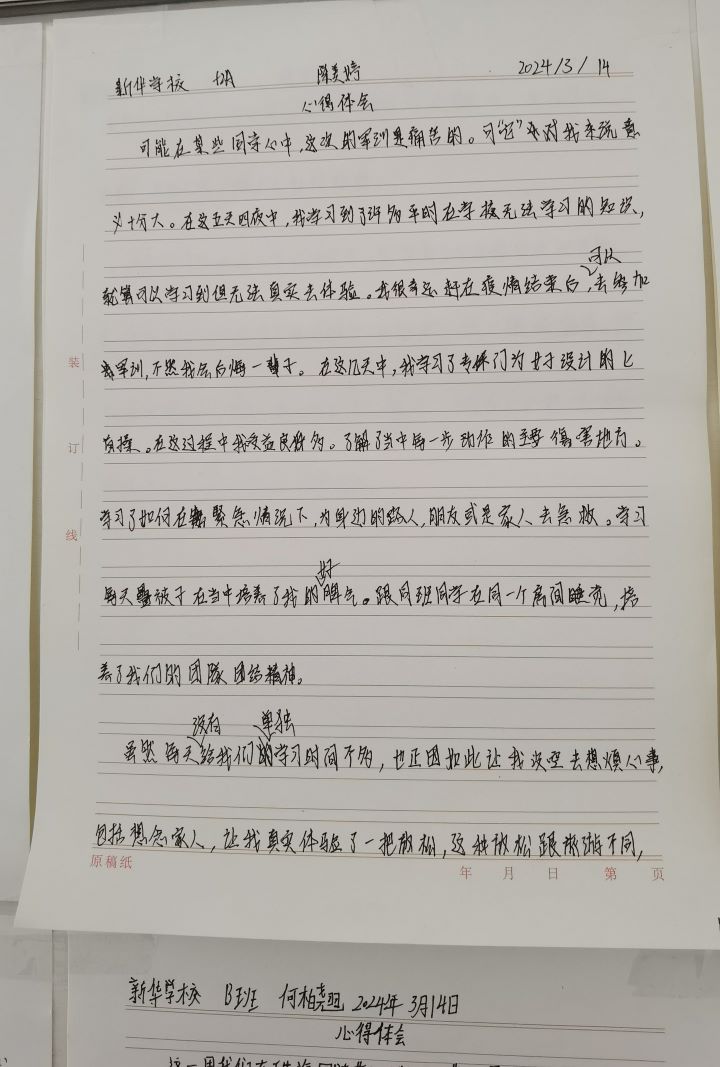 新华学校 F2A 陈美婷 2024/3/14
心得体会
可能在某些同学心中,这次的军训是痛苦的。可"它"却对我来说意
义十分大。在这五天四夜中,我学习到了许多平时在学校无法学习的知识,
就算可以学习到但无法真实去体验。我很幸运好在疫情结束后,可以去参加
军训,不然我会后悔一辈子。在这几天中,我学习了专门为女子设计的匕
首操。在这过程中我受益良多。了解了当中每一步动作的主要傷害地方。
学习了如何在紧急情况下,为身边的路人,朋友或是家人去急救。学习
每天叠被子在当中培养了我的好脾气。跟同班同学在同一个房间睡觉,培
养了我们的团队团结精神。
虽然每天没有给我们单独的学习时间不多,也正因如此让我没空去想烦心事,
包括想念家人,让我真实体验了一把放松,这种放松跟旅游不同,
装
订
线
原稿纸 年 月 日 第 页
新华学校 B班 何柏 2024年3月14日
心得体会